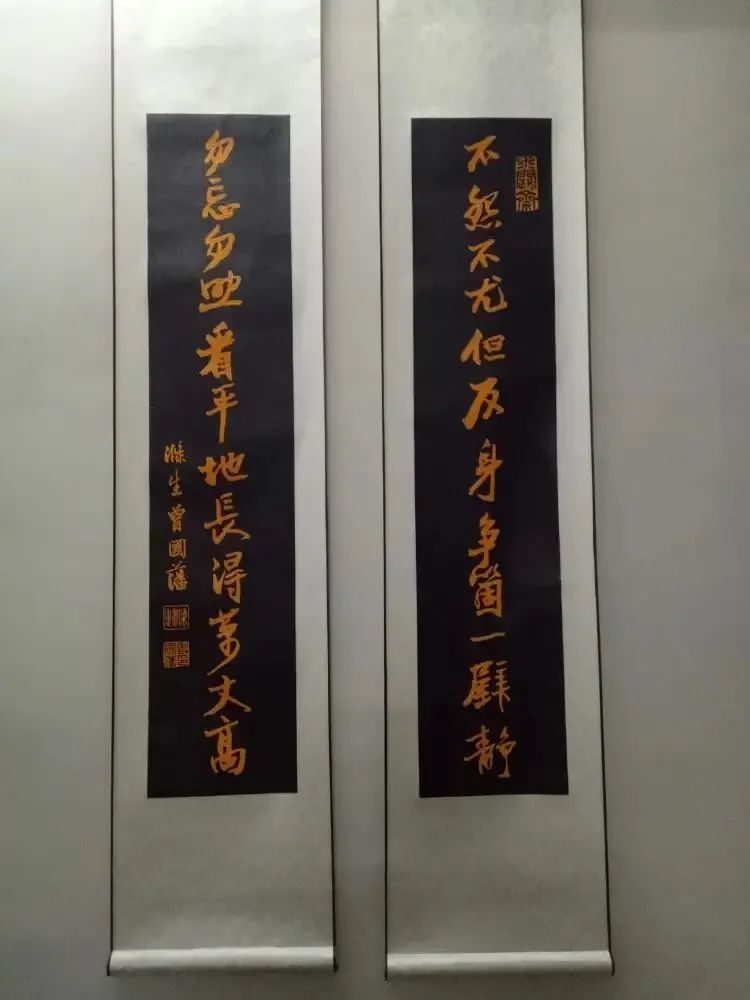 求闕齋
不怨不尤但反身争箇一壁静
勿忘勿助看平地長得萬丈高
滌生曾國藩